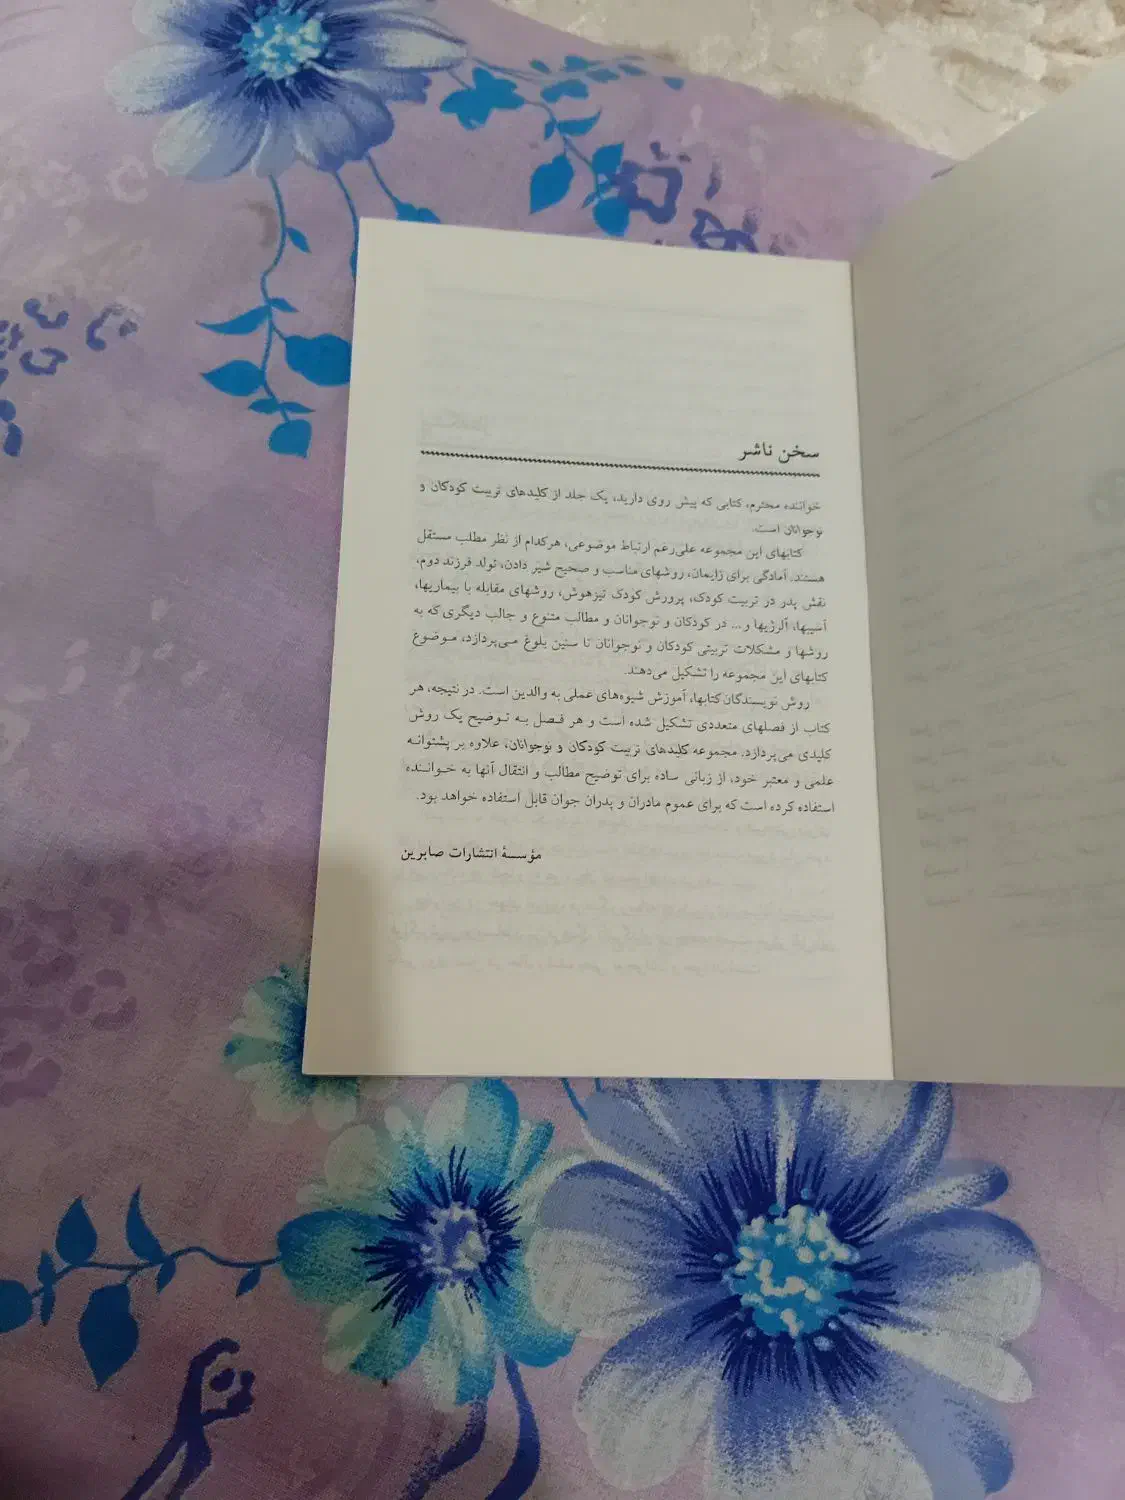 سخن ناشر
خواننده محترم، کتابی که پیش روی دارید، یک جلد از کلیدهای تربیت کودکان و
نوجوانان است.
کتابهای این مجموعه علی‌رغم ارتباط موضوعی، هرکدام از نظر مطلب مستقل
هستند. آمادگی برای زایمان، روشهای مناسب و صحیح شیر دادن، تولد فرزند دوم،
نقش پدر در تربیت کودک، پرورش کودک تیزهوش، روشهای مقابله با بیماریها،
آسیبها، آلرژیها و... در کودکان و نوجوانان و مطالب متنوع و جالب دیگری که به
روشها و مشکلات تربیتی کودکان و نوجوانان تا سنین بلوغ می‌پردازد، موضوع
کتابهای این مجموعه را تشکیل می‌دهند.
روش نویسندگان کتابها، آموزش شیوه‌های عملی به والدین است. در نتیجه، هر
کتاب از فصلهای متعددی تشکیل شده است و هر فصل به توضیح یک روش
کلیدی می‌پردازد. مجموعه کلیدهای تربیت کودکان و نوجوانان، علاوه بر پشتوانه
علمی و معتبر خود، از زبانی ساده برای توضیح مطالب و انتقال آنها به خواننده
استفاده کرده است که برای عموم مادران و پدران جوان قابل استفاده خواهد بود.
مؤسسهٔ انتشارات صابرین